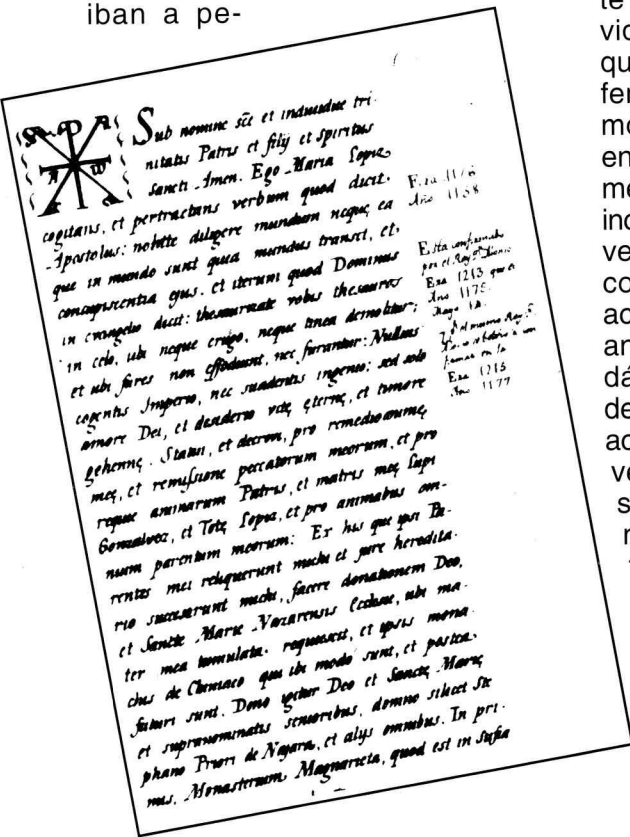 iban a pe-
Sub nomine sc̃e et individue tri-
nitatis Patris et filij et spiritus
sancti Amen. Ego Maria Lopez
cogitans, et pertractans verbum quod dicit
Apostolus: nolite diligere mundum neque ea
que in mundo sunt quia mundus transit, et
concupiscentia ejus. et iterum quod Dominus
in evangelio dicit: thesaurizate vobis thesauros
in celo, ubi neque erugo, neque tinea demolitur;
et ubi fures non effodiunt, nec furantur: Nullius
cogentis Imperio, nec suadentis ingenio: sed solo
amore Dei, et desiderio vitę eternę, et timore
gehennę. Statui, et decrevi, pro remedio animę
meę, et remissione peccatorum meorum, et pro
requie animarum Patris, et matris meę Lupi
Gonzalvez, et Totę Lopez, et pro animabus om-
nium parentum meorum: Ex his que ipsi Pa-
rentes mei reliquerunt michi et jure heredita-
rio michi, facere donationem Deo,
et Sancte Marie Nazarensis Ecclesie, ubi ma-
ter mea tumulata requiescit, et ipsis mona-
chis de Cluniaco qui ibi modo sunt, et postea
futuri sunt. Dono igitur Deo et Sanctę Marię
et supranominatis senioribus, domno scilicet Ste
phano Priori de Najara, et alijs omnibus. In pri-
mis. Monasterium Magnarieta, quod est in
Era 1176
Año 1138
Esta confirmado
por el Rey
Era 1213 que es
Año 1175
Era 1215
Año 1177
te
vic
qu
fer
mo
en
me
inc
ve
co
ac
an
dá
de
ac
ve
s